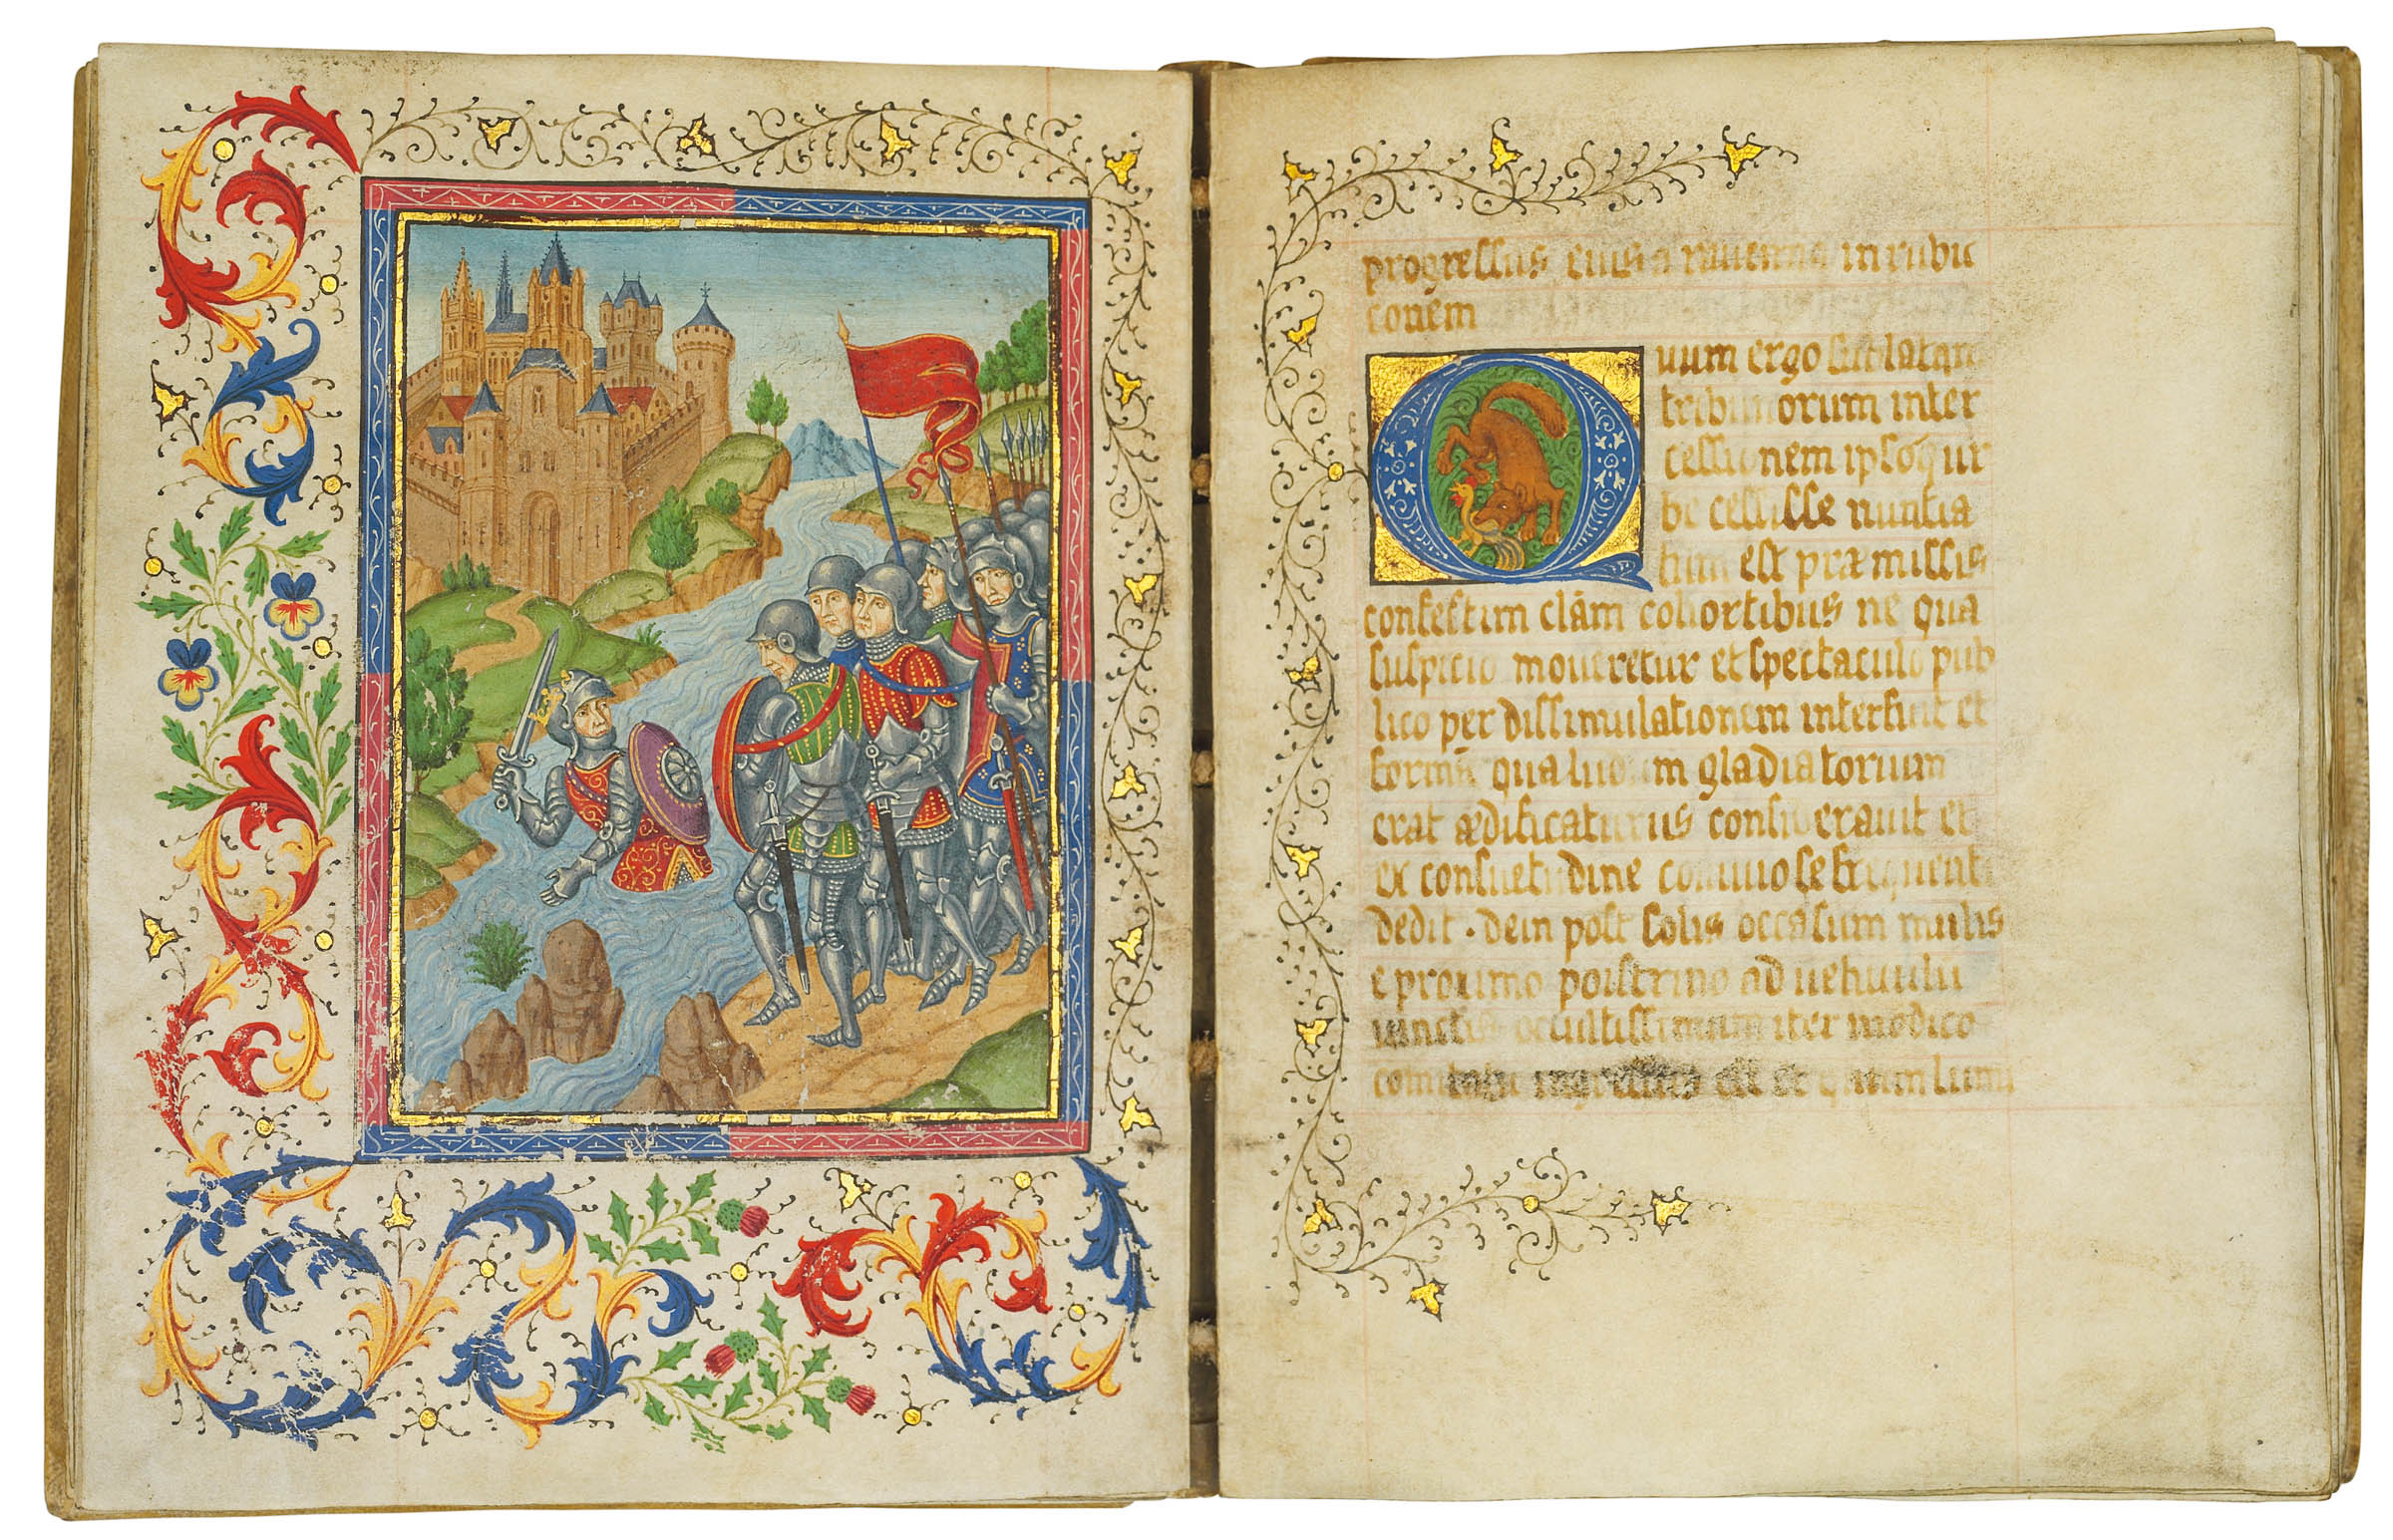 progressus eius a rauenna in rubic
conem
Quum ergo sublatam
tribunorum inter
cessionem ipsoqur
be cessisse nuntia
tum est præmissis
confestim clàm cohortibus ne qua
suspicio moueretur et spectaculo pub
lico per dissimulationem interfuit et
formā qua ludum gladiatorium
erat ædificaturus considerauit et
ex consuetudine conuiuio se frequenti
dedit · dein post solis occasum mulis
e proximo pistrino ad uehiculū
iunctis occultissimum iter modico
comitatu ingressus est et quum lumi